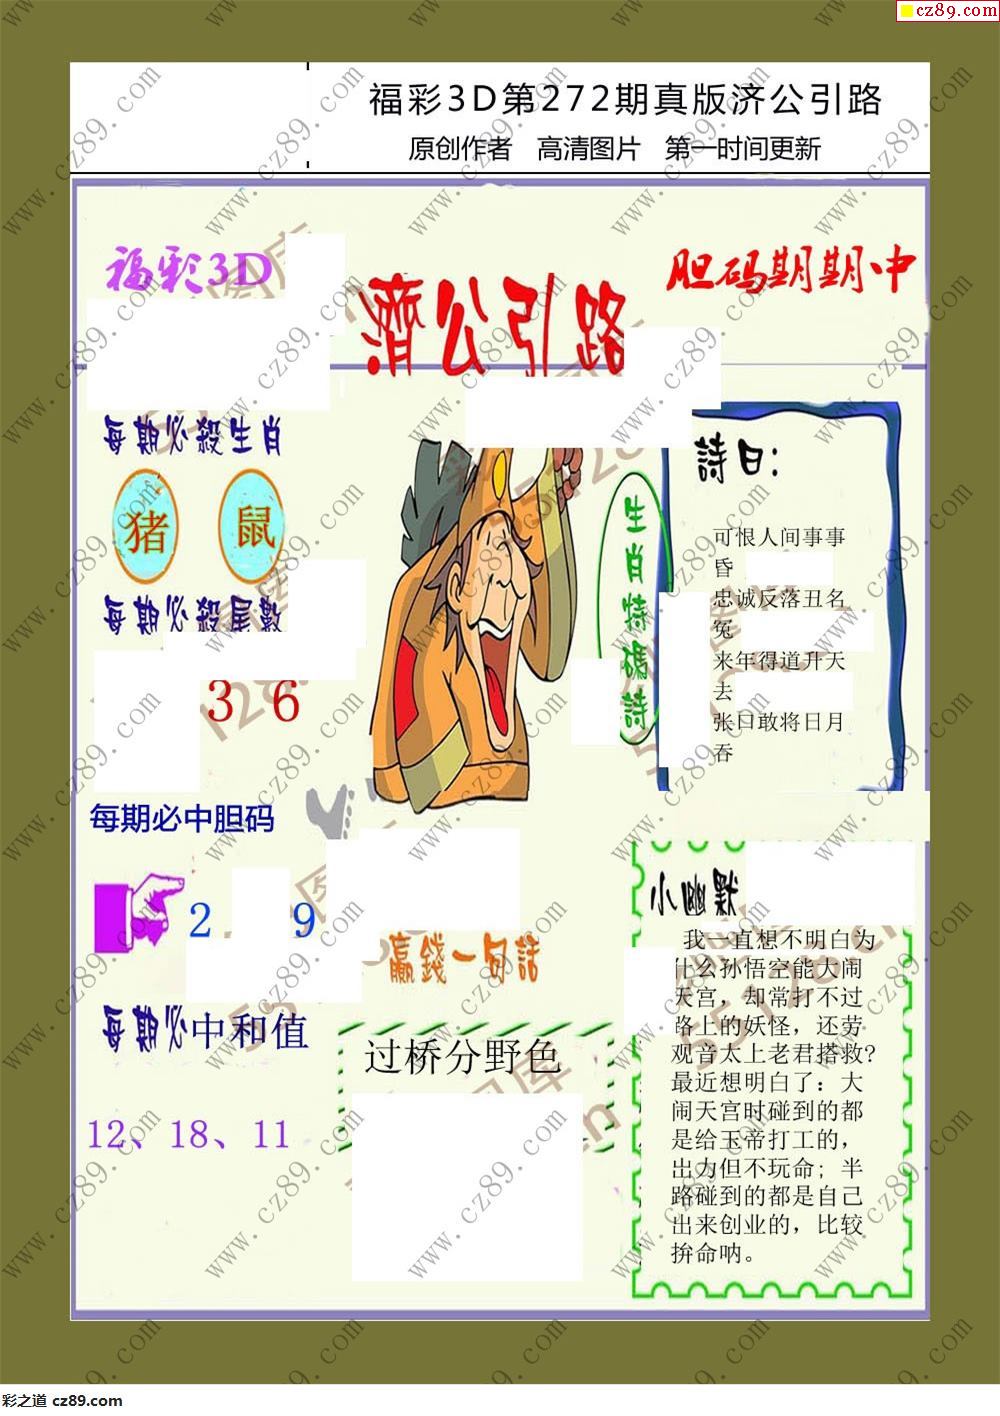 cz89.com
福彩3D第272期真版济公引路
原创作者 高清图片 第一时间更新
福彩3D
濟公引路
胆码期期中
每期必殺生肖
猪 鼠
每期必殺尾數
3 6
每期必中胆码
2 9
每期必中和值
12、18、11
生肖特碼詩
詩曰:
可恨人间事事
昏
忠诚反落丑名
冤
来年得道开天
去
张口敢将日月
吞
赢錢一句話
过桥分野色
小幽默
我一直想不明白为
什么孙悟空能大闹
天宫，却常打不过
路上的妖怪，还劳
观音太上老君搭救?
最近想明白了：大
闹天宫时碰到的都
是给玉帝打工的，
出力但不玩命；半
路碰到的都是自己
出来创业的，比较
拚命呐。
www.cz89.com
彩之道 cz89.com